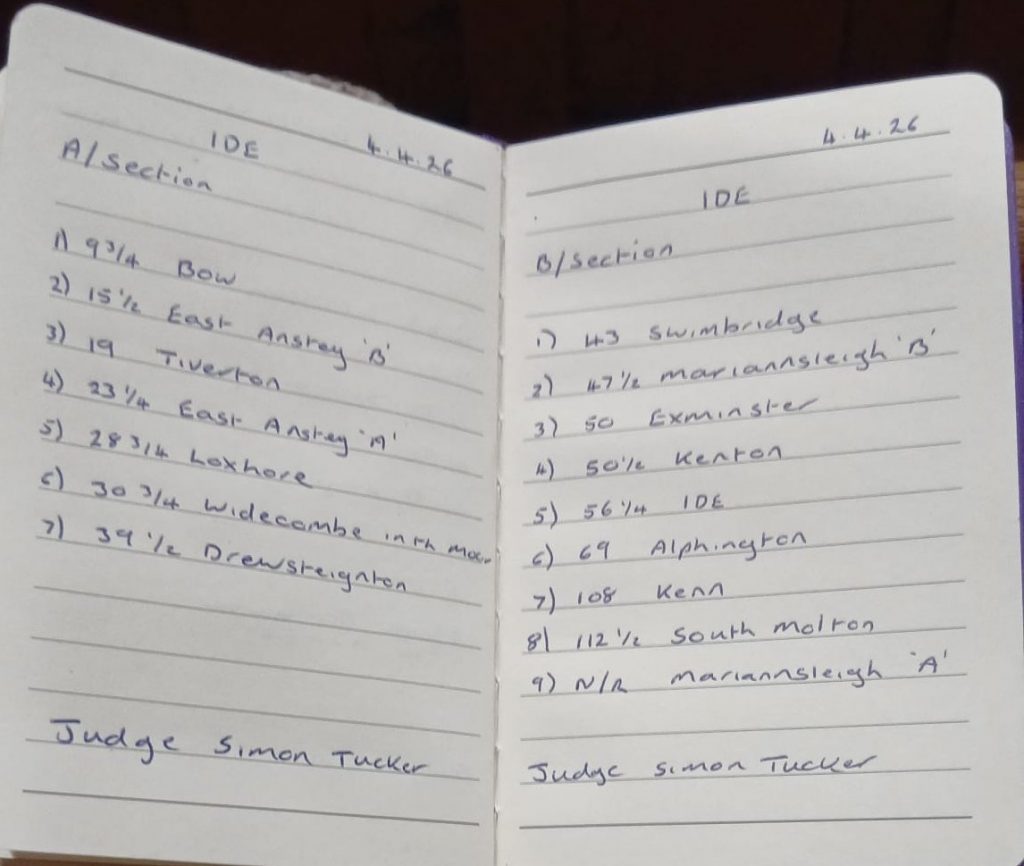 IDE 4.4.26
A/Section
1) 9 3/4 Bow
2) 15 1/2 East Anstey 'B'
3) 19 Tiverton
4) 23 1/4 East Anstey 'A'
5) 28 3/4 Loxhore
6) 30 3/4 Widecombe in th moor
7) 39 1/2 Drewsteignton
Judge Simon Tucker
4.4.26
IDE
B/Section
1) 43 Swimbridge
2) 47 1/2 Mariannsleigh 'B'
3) 50 Exminster
4) 50 1/2 Kenton
5) 56 1/4 IDE
6) 69 Alphington
7) 108 Kenn
8) 112 1/2 South Molton
9) N/R Mariannsleigh 'A'
Judge Simon Tucker